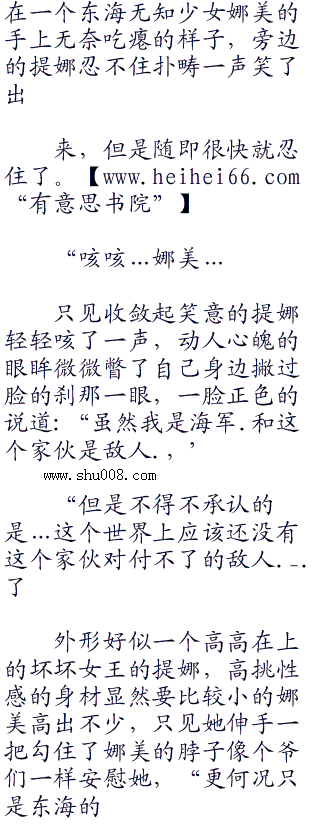 在一个东海无知少女娜美的
手上无奈吃瘪的样子，旁边
的提娜忍不住扑哧一声笑了
出
来，但是随即很快就忍
住了。【www.heihei66.com
“有意思书院”】
“咳咳...娜美...
只见收敛起笑意的提娜
轻轻咳了一声，动人心魄的
眼眸微微瞥了自己身边撇过
脸的刹那一眼，一脸正色的
说道：“虽然我是海军.和这
个家伙是敌人.，’
www.shu008.com
“但是不得不承认的
是...这个世界上应该还没有
这个家伙对付不了的敌人._..
了
外形好似一个高高在上
的坏坏女王的提娜，高挑性
感的身材显然要比较小的娜
美高出不少，只见她伸手一
把勾住了娜美的脖子像个爷
们一样安慰她，“更何况只
是东海的